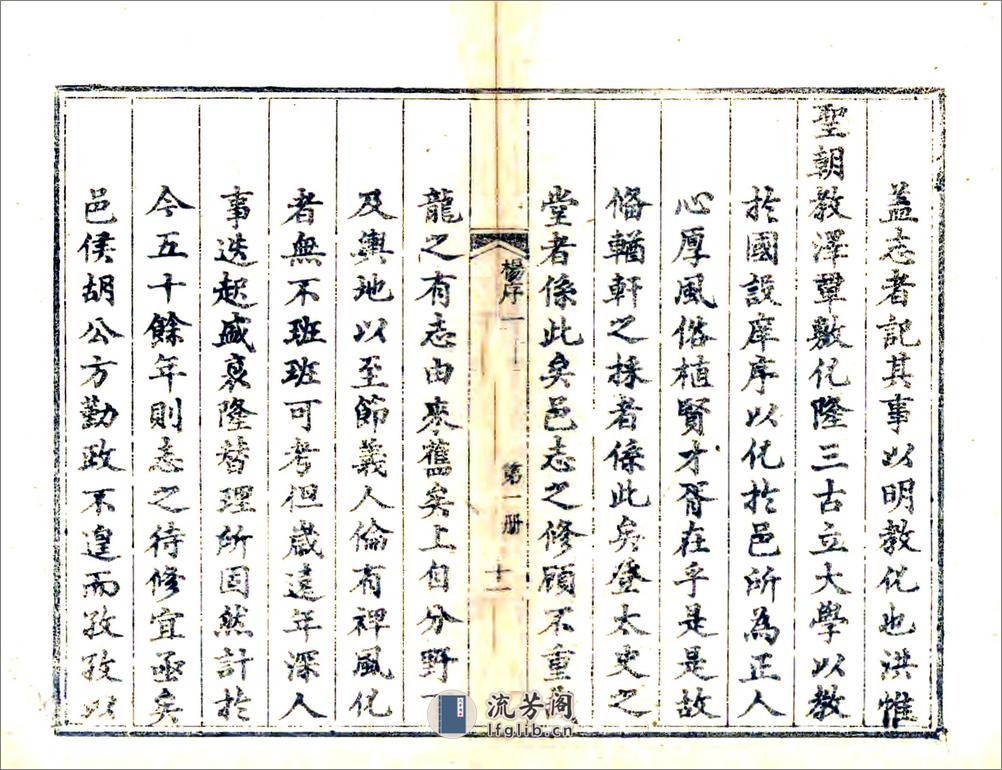 蓋志者記其事以明教化也洪惟
聖朝教澤覃敷化隆三古立大學以教
於國設庠序以化於邑所為正人
心厚風俗植賢才胥在乎是是故
偹輶軒之採者係此矣登太史之
堂者係此矣邑志之修顧不重
楊序一
第一册
十一
龍之有志由來舊矣上自分野下
及輿地以至節義人倫有裨風化
者無不班班可考但歲遠年深人
事迭起盛衰隆替理所固然計於
今五十餘年則志之待修宜亟矣
邑侯胡公方勤政不遑而孜孜以
流芳阁
lfglib.cn